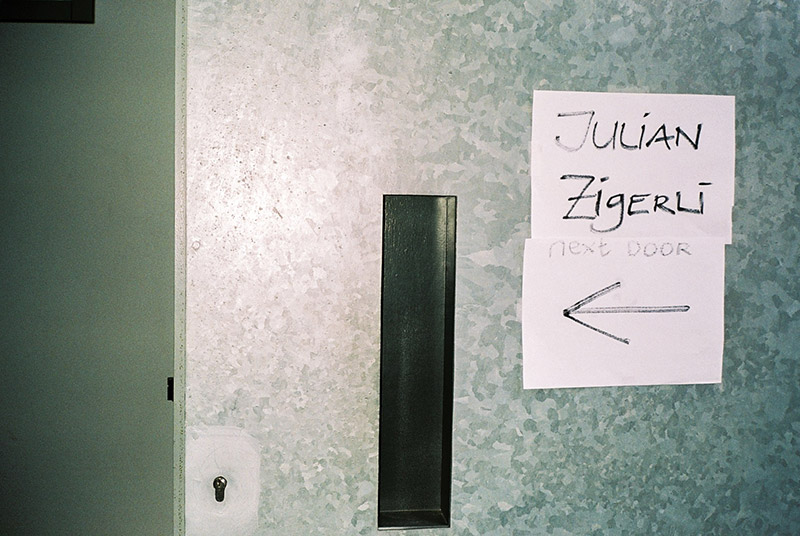 JULiAN
ZigERLi
next DOOR